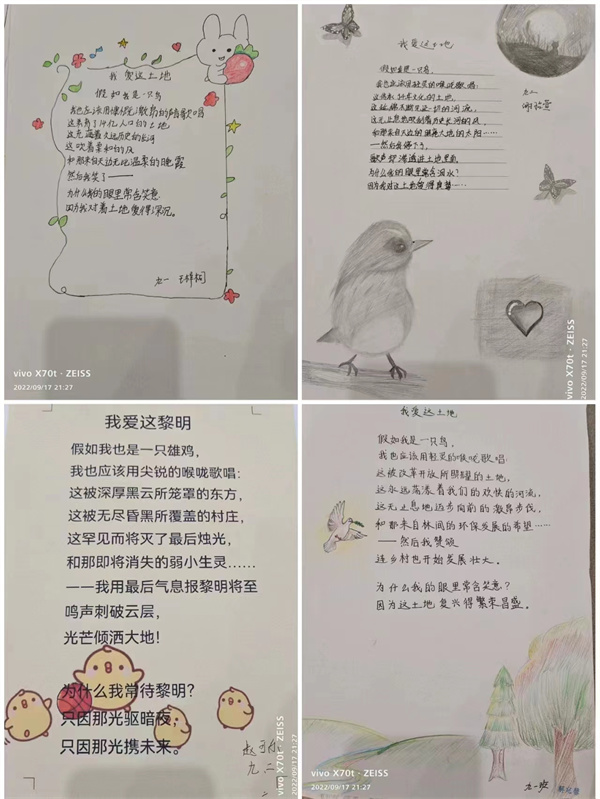 我爱这土地
假如我是一只鸟
我也应该用像悦 激昂的声音歌唱
这承育了14亿人口的土地
这充蕴着久远历史的长河
这吹着柔和的风
和那来自天边无比温柔的晚霞
然后我笑了——
为什么我的眼里常含笑意
因为我对着土地爱得深沉。
九一
vivo X70t · ZEISS
2022/09/17 21:27
我爱这土地
假如我是一只鸟,
我也应该用轻灵的喉咙歌唱:
的土地,
的河流,
这无止息地吹刮着
的风,
和那来自天边的
的太阳……
——然后我停下了,
歌声却渗透进土地里面
为什么我的眼里常含泪水?
因为我对这土地爱得真挚……
九二
vivo X70t · ZEISS
2022/09/17 21:27
我爱这黎明
假如我也是一只雄鸡,
我也应该用尖锐的喉咙歌唱:
这被深厚黑云所笼罩的东方,
这被无尽昏黑所覆盖的村庄,
这罕见而将灭了最后烛光,
和那即将消失的弱小生灵……
——我用最后气息报黎明将至
鸣声刺破云层,
光芒倾洒大地!
为什么我常待黎明?
只因那光驱暗夜,
只因那光携未来。
九二
vivo X70t · ZEISS
2022/09/17 21:27
我爱这土地
假如我是一只鸟,
我也应该用轻灵的喉咙歌唱:
这被改革开放所照耀的土地,
这永远荡漾着我们的欢快的河流,
这无止息地迈步向前的激昂步伐,
和那来自林间的环保发展的希望……
——然后我赞颂
连乡村也开始发展壮大。
为什么我的眼里常含笑意?
因为这土地复兴得繁荣昌盛。
九一班
vivo X70t · ZEISS
2022/09/17 21:27